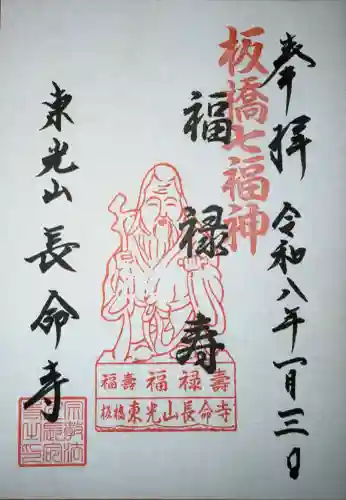 奉拝 令和八年一月三日
板橋七福神
福禄寿
東光山長命寺
福壽 福禄壽
板橋 東光山長命寺